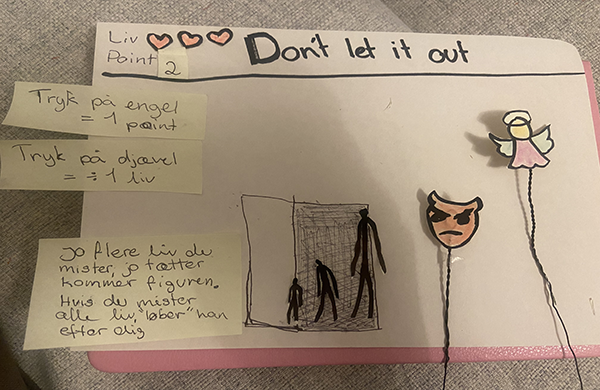 Liv
Point 2
Don't let it out
Tryk på engel
= 1 point
Tryk på djævel
= ÷ 1 liv
Jo flere liv du
mister, jo tættere
kommer figuren.
Hvis du mister
alle liv, "løber" han
efter dig